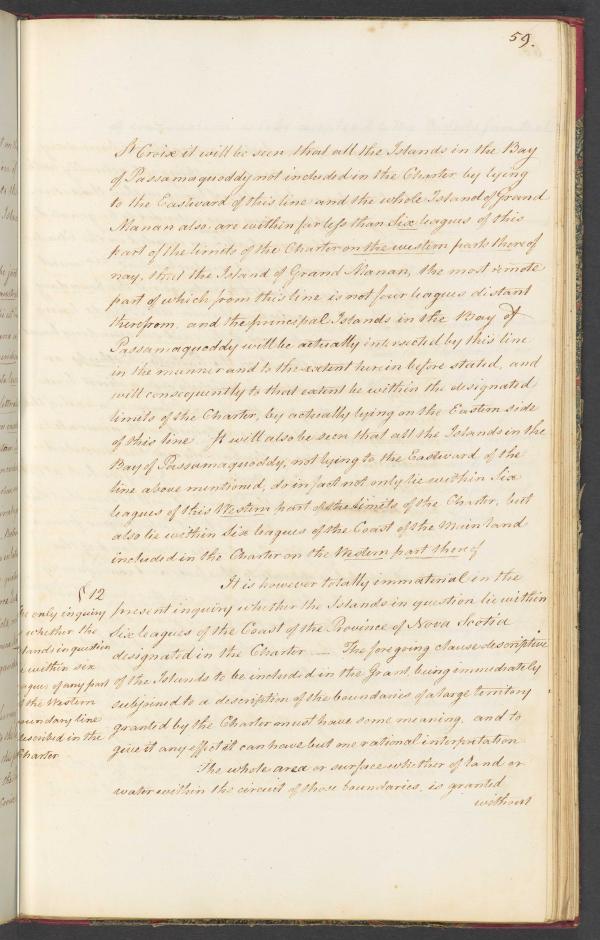 59.
St Croix it will be seen that all the Islands in the Bay
of Passamaquoddy not included in the Charter by lying
to the Eastward of this line and the whole Island of Grand
Manan also are within far less than Six leagues of this
part of the limits of the Charter on the western part thereof
nay, that the Island of Grand Manan, the most remote
part of which from this line is not four leagues distant
therefrom, and the principal Islands in the Bay of
Passamaquoddy will be actually intersected by this line
in the manner and to the extent herein before stated, and
will consequently to that extent be within the designated
limits of the Charter, by actually lying on the Eastern side
of this line It will also be seen that all the Islands in the
Bay of Passamaquoddy, not lying to the Eastward of the
line above mentioned, do in fact not only lie within Six
leagues of this Western part of the limits of the Charter, but
also lie within Six leagues of the Coast of the Main land
included in the Charter on the Western part thereof
§ 12
only inquiry
whether the
Islands in question
within six
of any part
the Western
boundary line
described in the
Charter
It is however totally immaterial in the
present inquiry whether the Islands in question lie within
Six leagues of the Coast of the Province of Nova Scotia
designated in the Charter — The foregoing clause descriptive
of the Islands to be included in the Grant, being immediately
subjoined to a description of the boundaries of a large territory
granted by the Charter must have some meaning, and to
give it any effect it can have but one rational interpretation
The whole area or surface whether of land or
water within the circuit of those boundaries, is granted
without